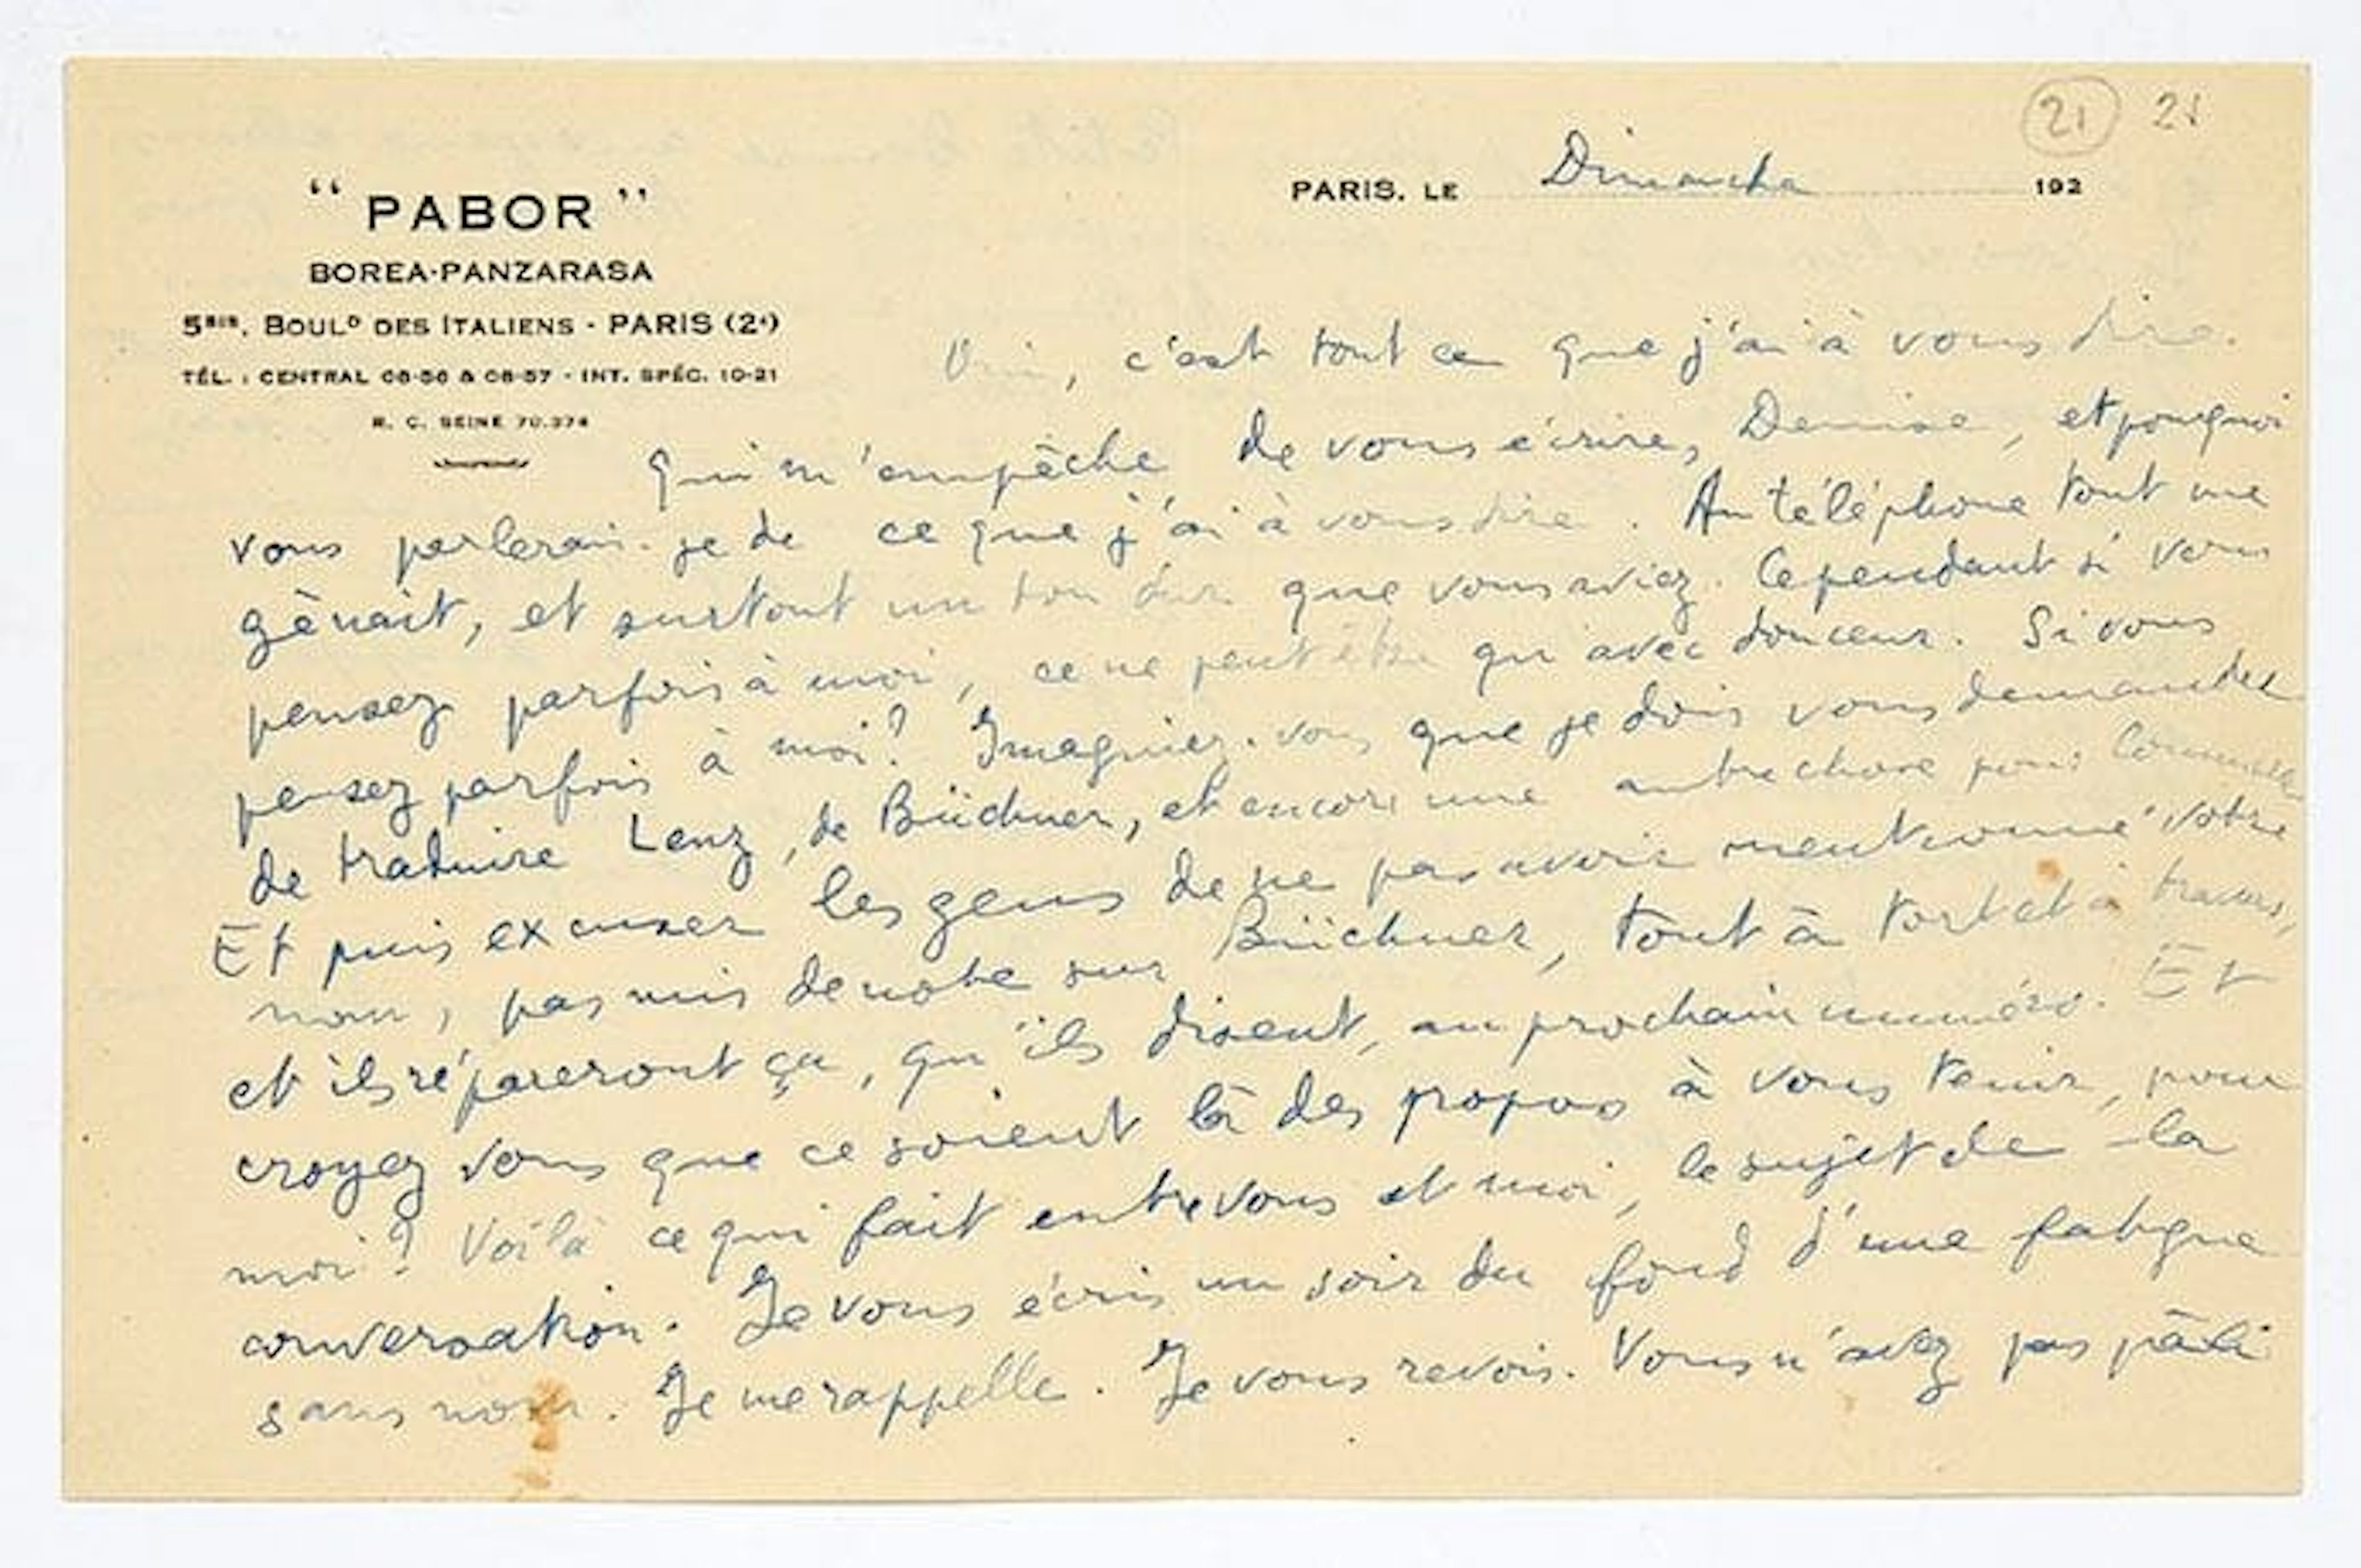 21 21
PARIS, LE Dimanche 192
“ PABOR ”
BOREA-PANZARASA
5BIS, BOULD DES ITALIENS - PARIS (2e)
TÉL. : CENTRAL 08-56 & 08-57 - INT. SPÉC. 10-21
R. C. SEINE 70.374
c'est tout ce que j'ai à vous dire.
Qui m'empêche de vous écrire, Denise, et pourquoi
vous parlerai-je de ce que j'ai à vous dire. Au téléphone tout me
gênait, et surtout un ton dur que vous aviez. Cependant si vous
pensez parfois à moi, ce ne peut être qu'avec douceur. Si vous
pensez parfois à moi? Imaginez-vous que je dois vous demander
de traduire Lenz, de Büchner, et encore une autre chose pour Commerce
Et puis excuser les gens de ne pas avoir mentionné votre
nom, pas mis de note sur Büchner, tout à tort et à travers,
et ils répareront ça, qu'ils disent, au prochain numéro. Et
croyez vous que ce soient là des propos à vous tenir, pour
moi? Voilà ce qui fait entre vous et moi, le sujet de la
conversation. Je vous écris un soir du fond d'une fatigue
sans nom. Je me rappelle. Je vous revois. Vous n'avez pas pâli